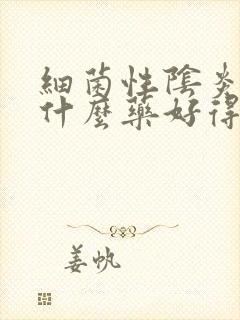 細菌性陰炎
什麼藥好得
姜帆